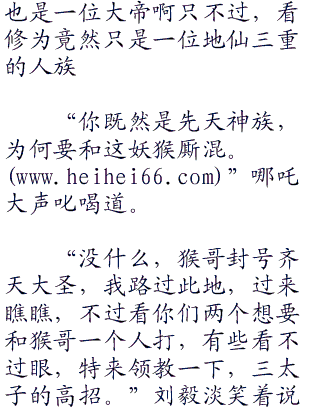 也是一位大帝啊只不过，看
修为竟然只是一位地仙三重
的人族
“你既然是先天神族，
为何要和这妖猴厮混。
(www.heihei66.com)”哪吒
大声叱喝道。
“没什么，猴哥封号齐
天大圣，我路过此地，过来
瞧瞧，不过看你们两个想要
和猴哥一个人打，有些看不
过眼，特来领教一下，三太
子的高招。”刘毅淡笑着说